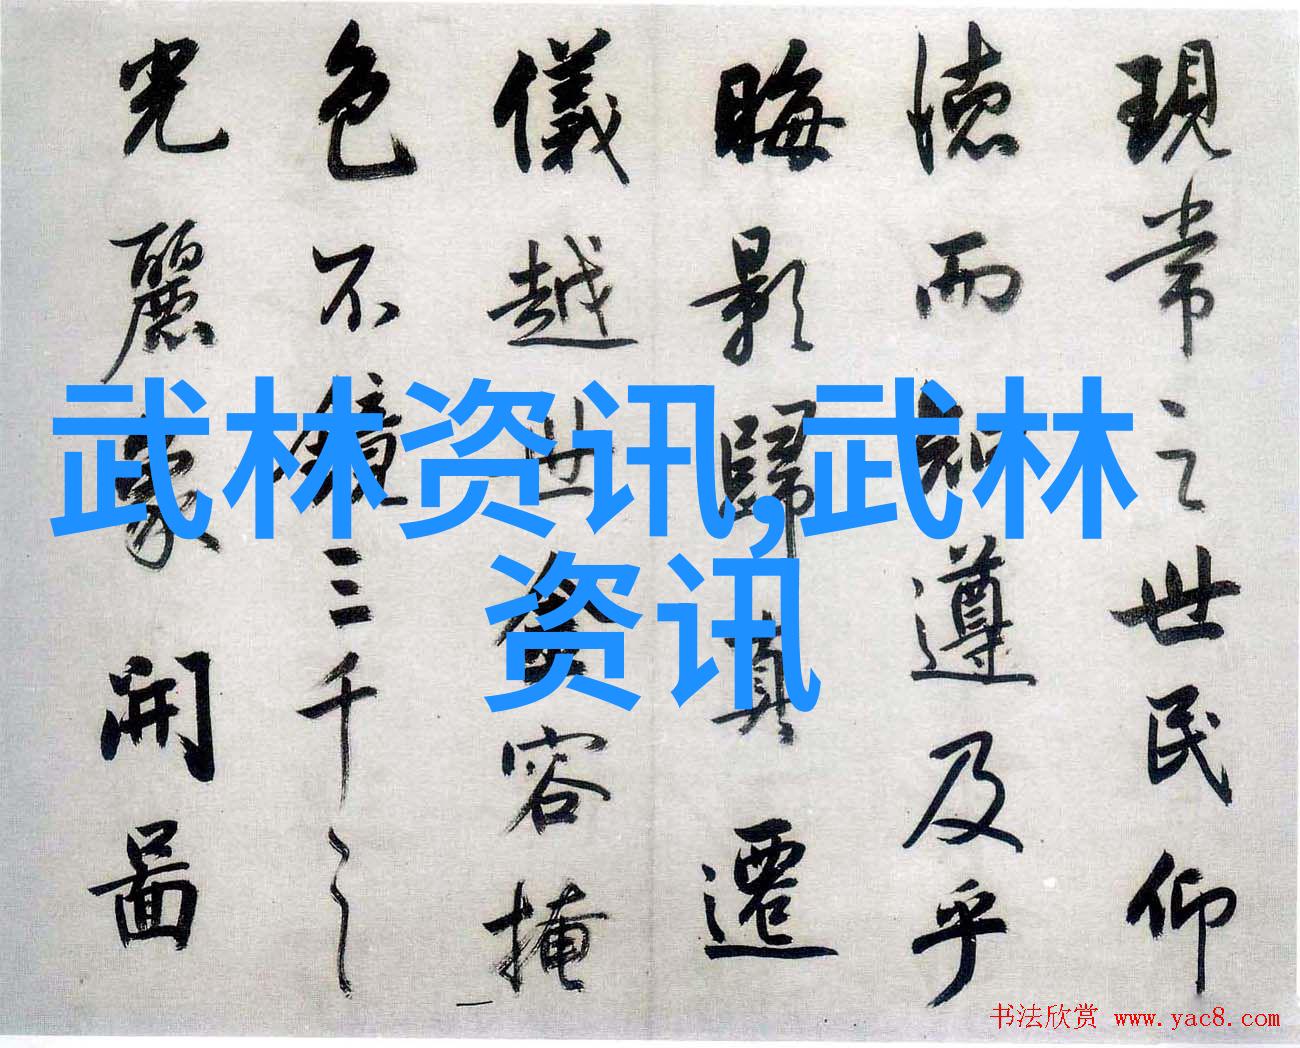 現常之世民仰
德而知遵及乎
晦影歸真遷
儀越世金容掩
色不鏡三千之
光麗象開圖
武林资讯,武林
资讯
书法欣赏 www.yac8.com